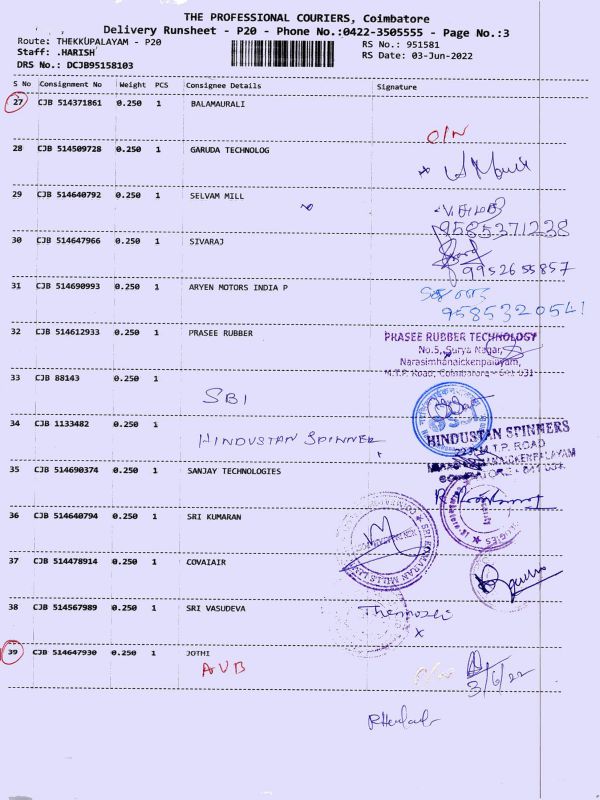 THE PROFESSIONAL COURIERS, Coimbatore
Delivery Runsheet - P20 - Phone No.:0422-3505555 - Page No.:3
Route: THEKKUPALAYAM - P20
RS No.: 951581
Staff: .HARISH
RS Date: 03-Jun-2022
DRS No.: DCJB95158103
S No Consignment No Weight PCS Consignee Details Signature
27 CJB 514371861 0.250 1 BALAMAURALI
O/N
28 CJB 514509728 0.250 1 GARUDA TECHNOLOG
29 CJB 514640792 0.250 1 SELVAM MILL
9585371238
30 CJB 514647966 0.250 1 SIVARAJ
9952655857
31 CJB 514690993 0.250 1 ARYEN MOTORS INDIA P
9585320541
32 CJB 514612933 0.250 1 PRASEE RUBBER
PRASEE RUBBER TECHNOLOGY
No.5, Surya Nagar,
Narasimhanaickenpalayam,
M.T.P. Road, Coimbatore - 641 031
33 CJB 88143 0.250 1
SBI
34 CJB 1133482 0.250 1
HINDUSTAN SPINNER
HINDUSTAN SPINNERS
M.T.P. ROAD
35 CJB 514690374 0.250 1 SANJAY TECHNOLOGIES
36 CJB 514640794 0.250 1 SRI KUMARAN
37 CJB 514478914 0.250 1 COVAIAIR
38 CJB 514567989 0.250 1 SRI VASUDEVA
39 CJB 514647930 0.250 1 JOTHI
AVB
3/6/22